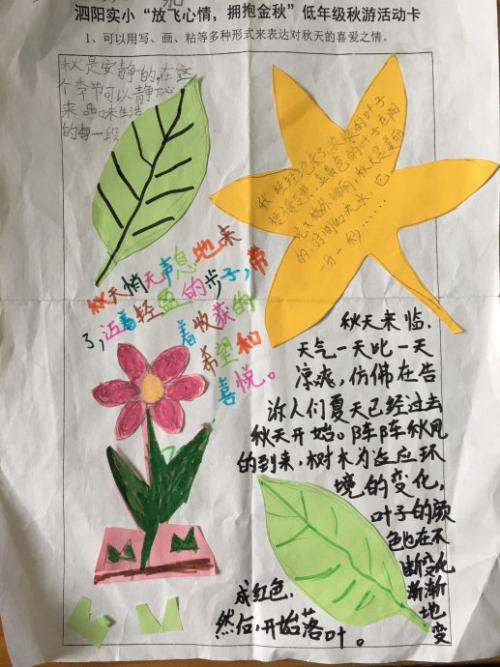 泗阳实小“放飞心情，拥抱金秋”低年级秋游活动卡
1、可以用写、画、粘等多种形式来表达对秋天的喜爱之情。
秋是安静的，在这
个季节可以静心
来品味生活
的每一段
秋天悄无声息地来
了，迈着轻盈的步子，带
着收获的
希望和
喜悦。
秋天来临，
天气一天比一天
凉爽，仿佛在告
诉人们夏天已经过去
秋天开始。阵阵秋风
的到来，树木为适应环
境的变化，
叶子的颜
色也在不
断变化
渐渐
地
变
成红色，
然后，开始落叶。